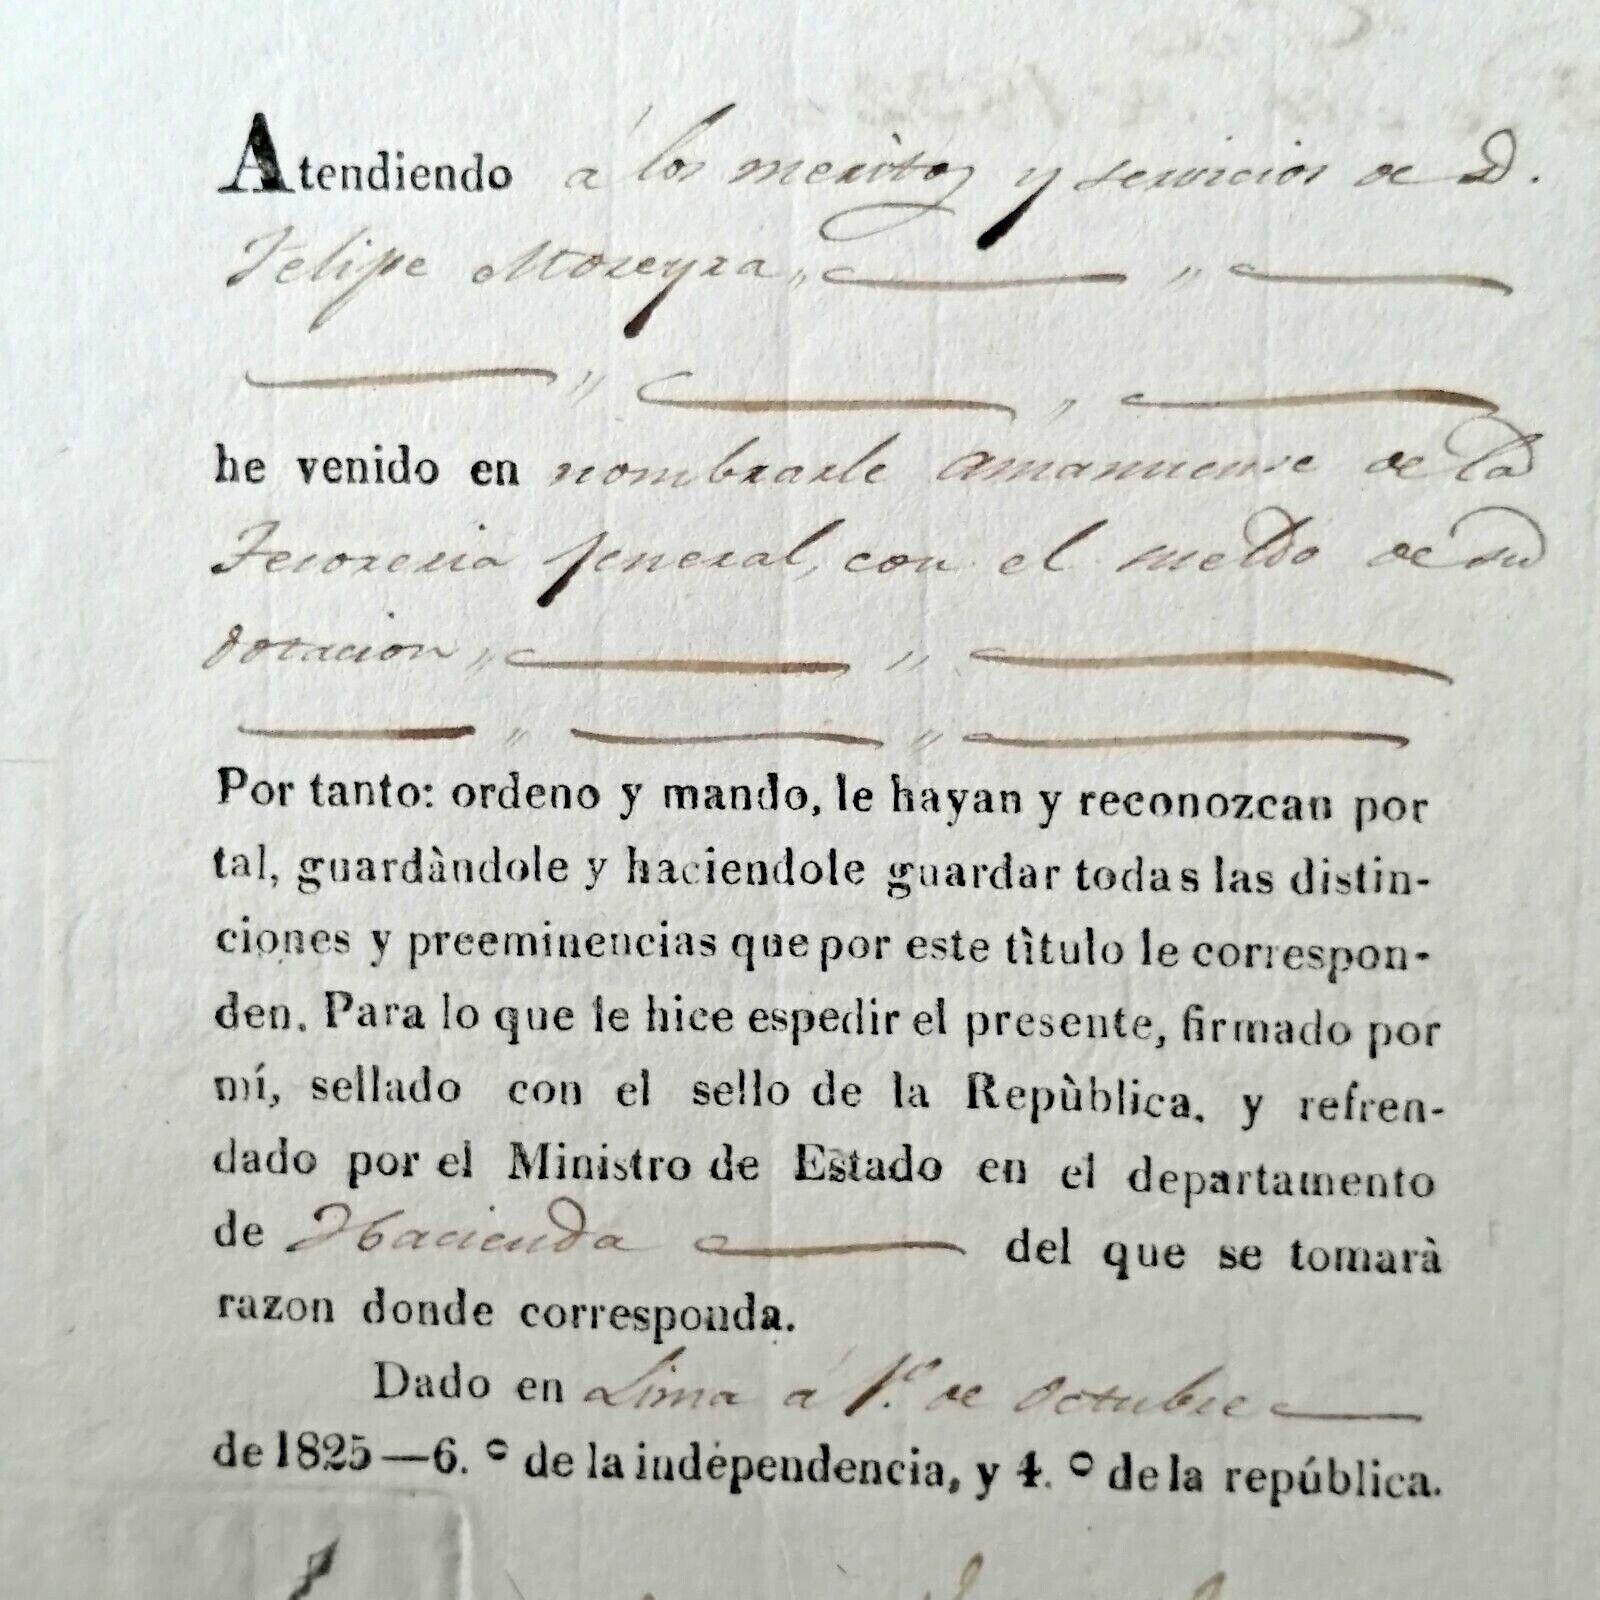 Atendiendo á los meritos y servicios de D.
Felipe Moreyra
he venido en nombrarle amanuense de la
Tesoreria jeneral, con el sueldo de su
dotacion
Por tanto: ordeno y mando, le hayan y reconozcan por
tal, guardàndole y haciendole guardar todas las distin-
ciones y preeminencias que por este tìtulo le correspon-
den. Para lo que le hice espedir el presente, firmado por
mí, sellado con el sello de la Repùblica. y refren-
dado por el Ministro de Estado en el departamento
de Hacienda del que se tomarà
razon donde corresponda.
Dado en Lima á 1.º de Octubre
de 1825—6.º de la independencia, y 4.º de la república.